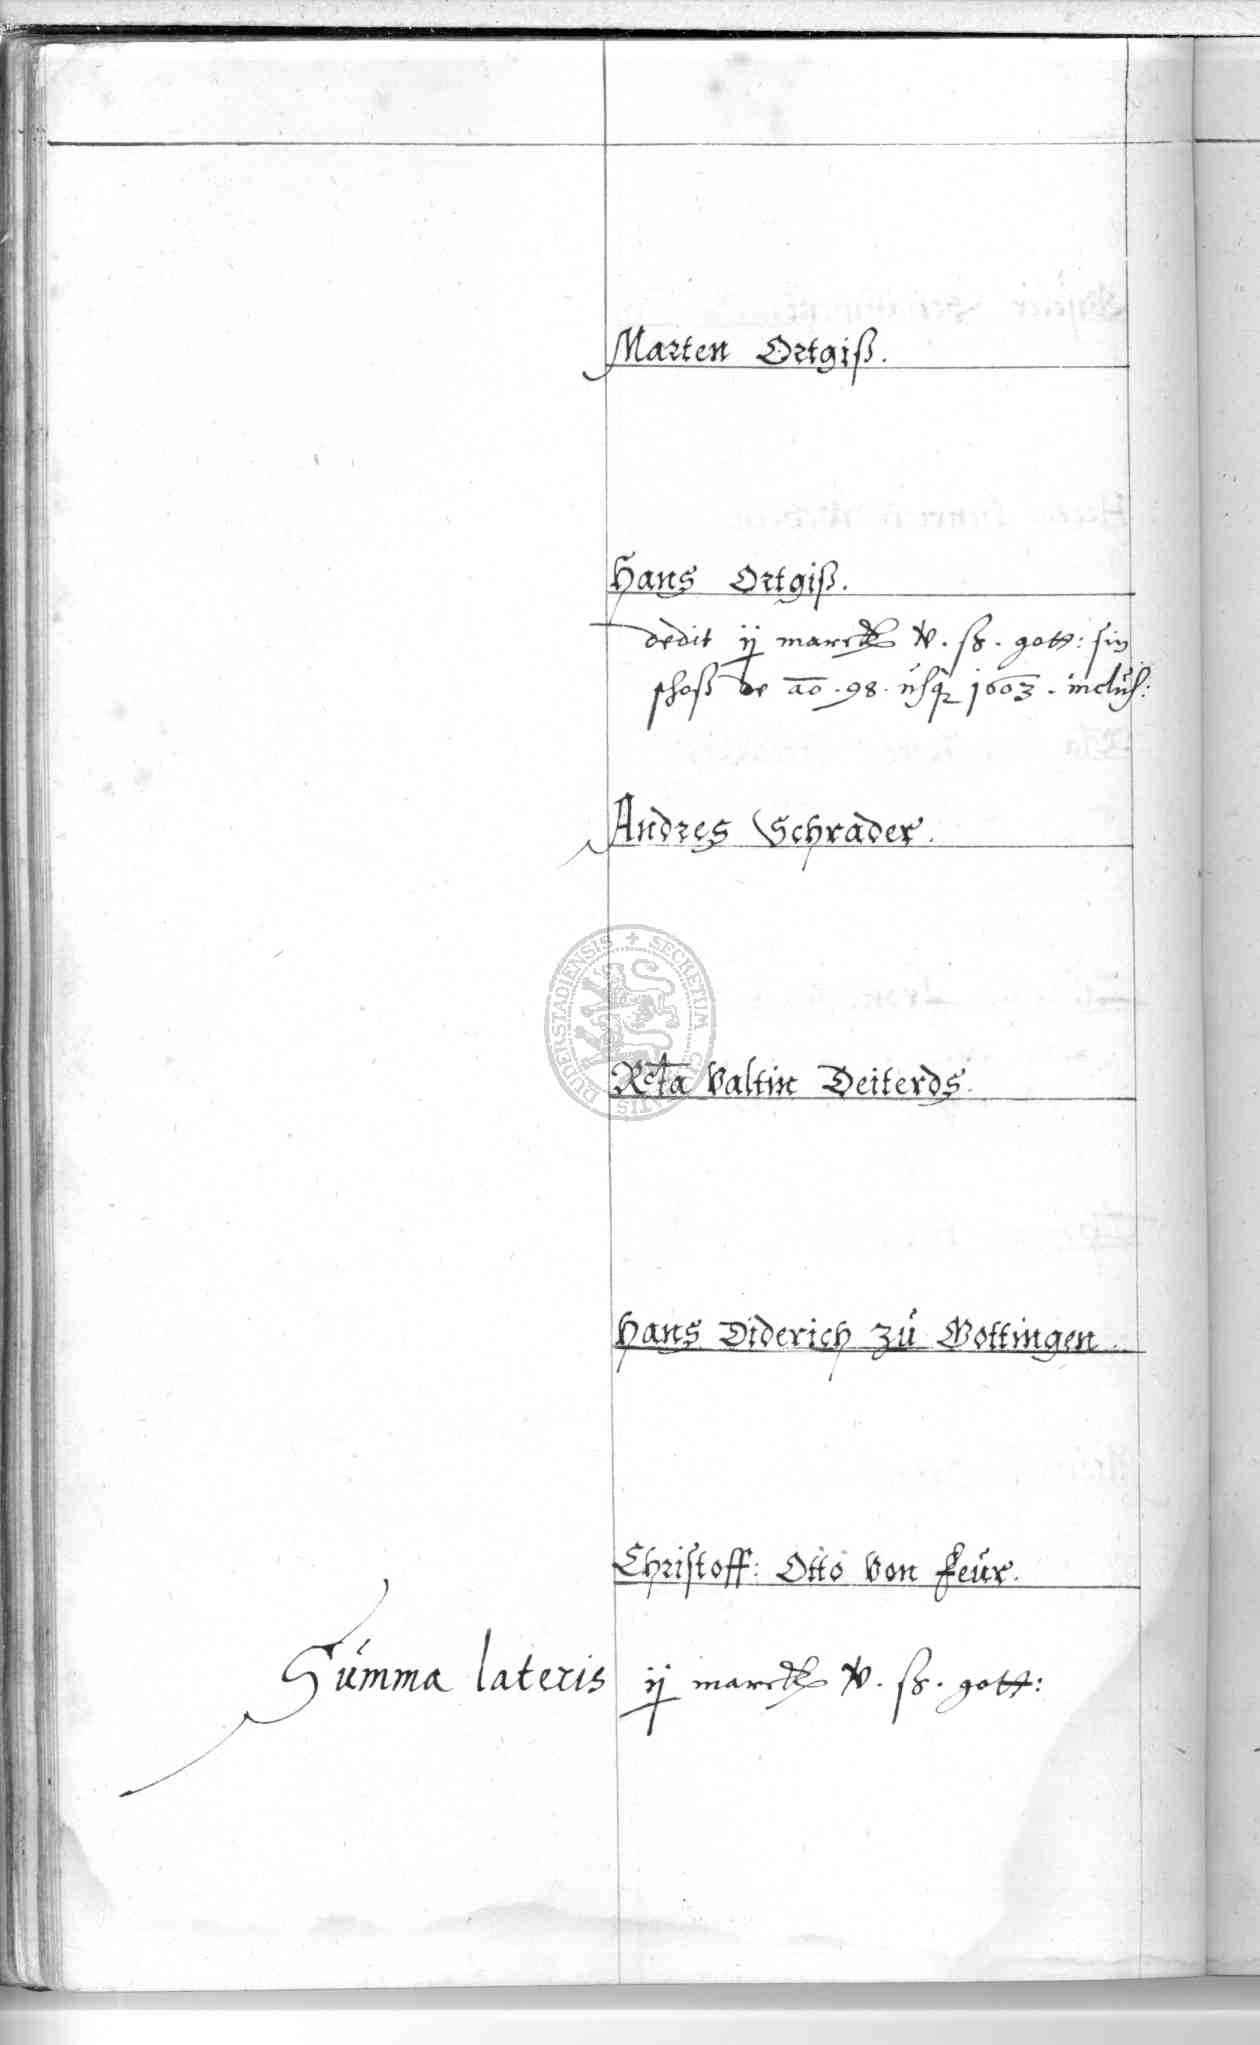 Marten Ortgiß.
Hans Ortgiß.
dedit ij marck v. ß. gott: sin
schoß de ao. 98. usq 1603. inclus:
Andres Schrader.
Rcta Valtin Deiterds.
Hans Diderich zu Gottingen.
Christoff: Otto von
Summa lateris ij marck v. ß. gott:
DUDERSTADIENSIS + SECRETUM CIVITATIS